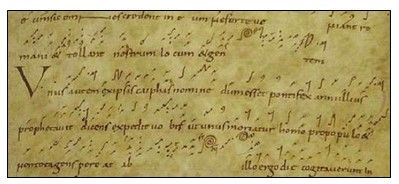 credent in e um neforte ue niant ro
mani & tollant nostrum lo cum & gen tem
Unus autem exipsis cayphas nomine dum esset pontifex anni illius
prophetauit dicens expedit uo bis ut unus moriatur homo propopulo &
non totagens pere at ab illo ergo die cogitauerunt in